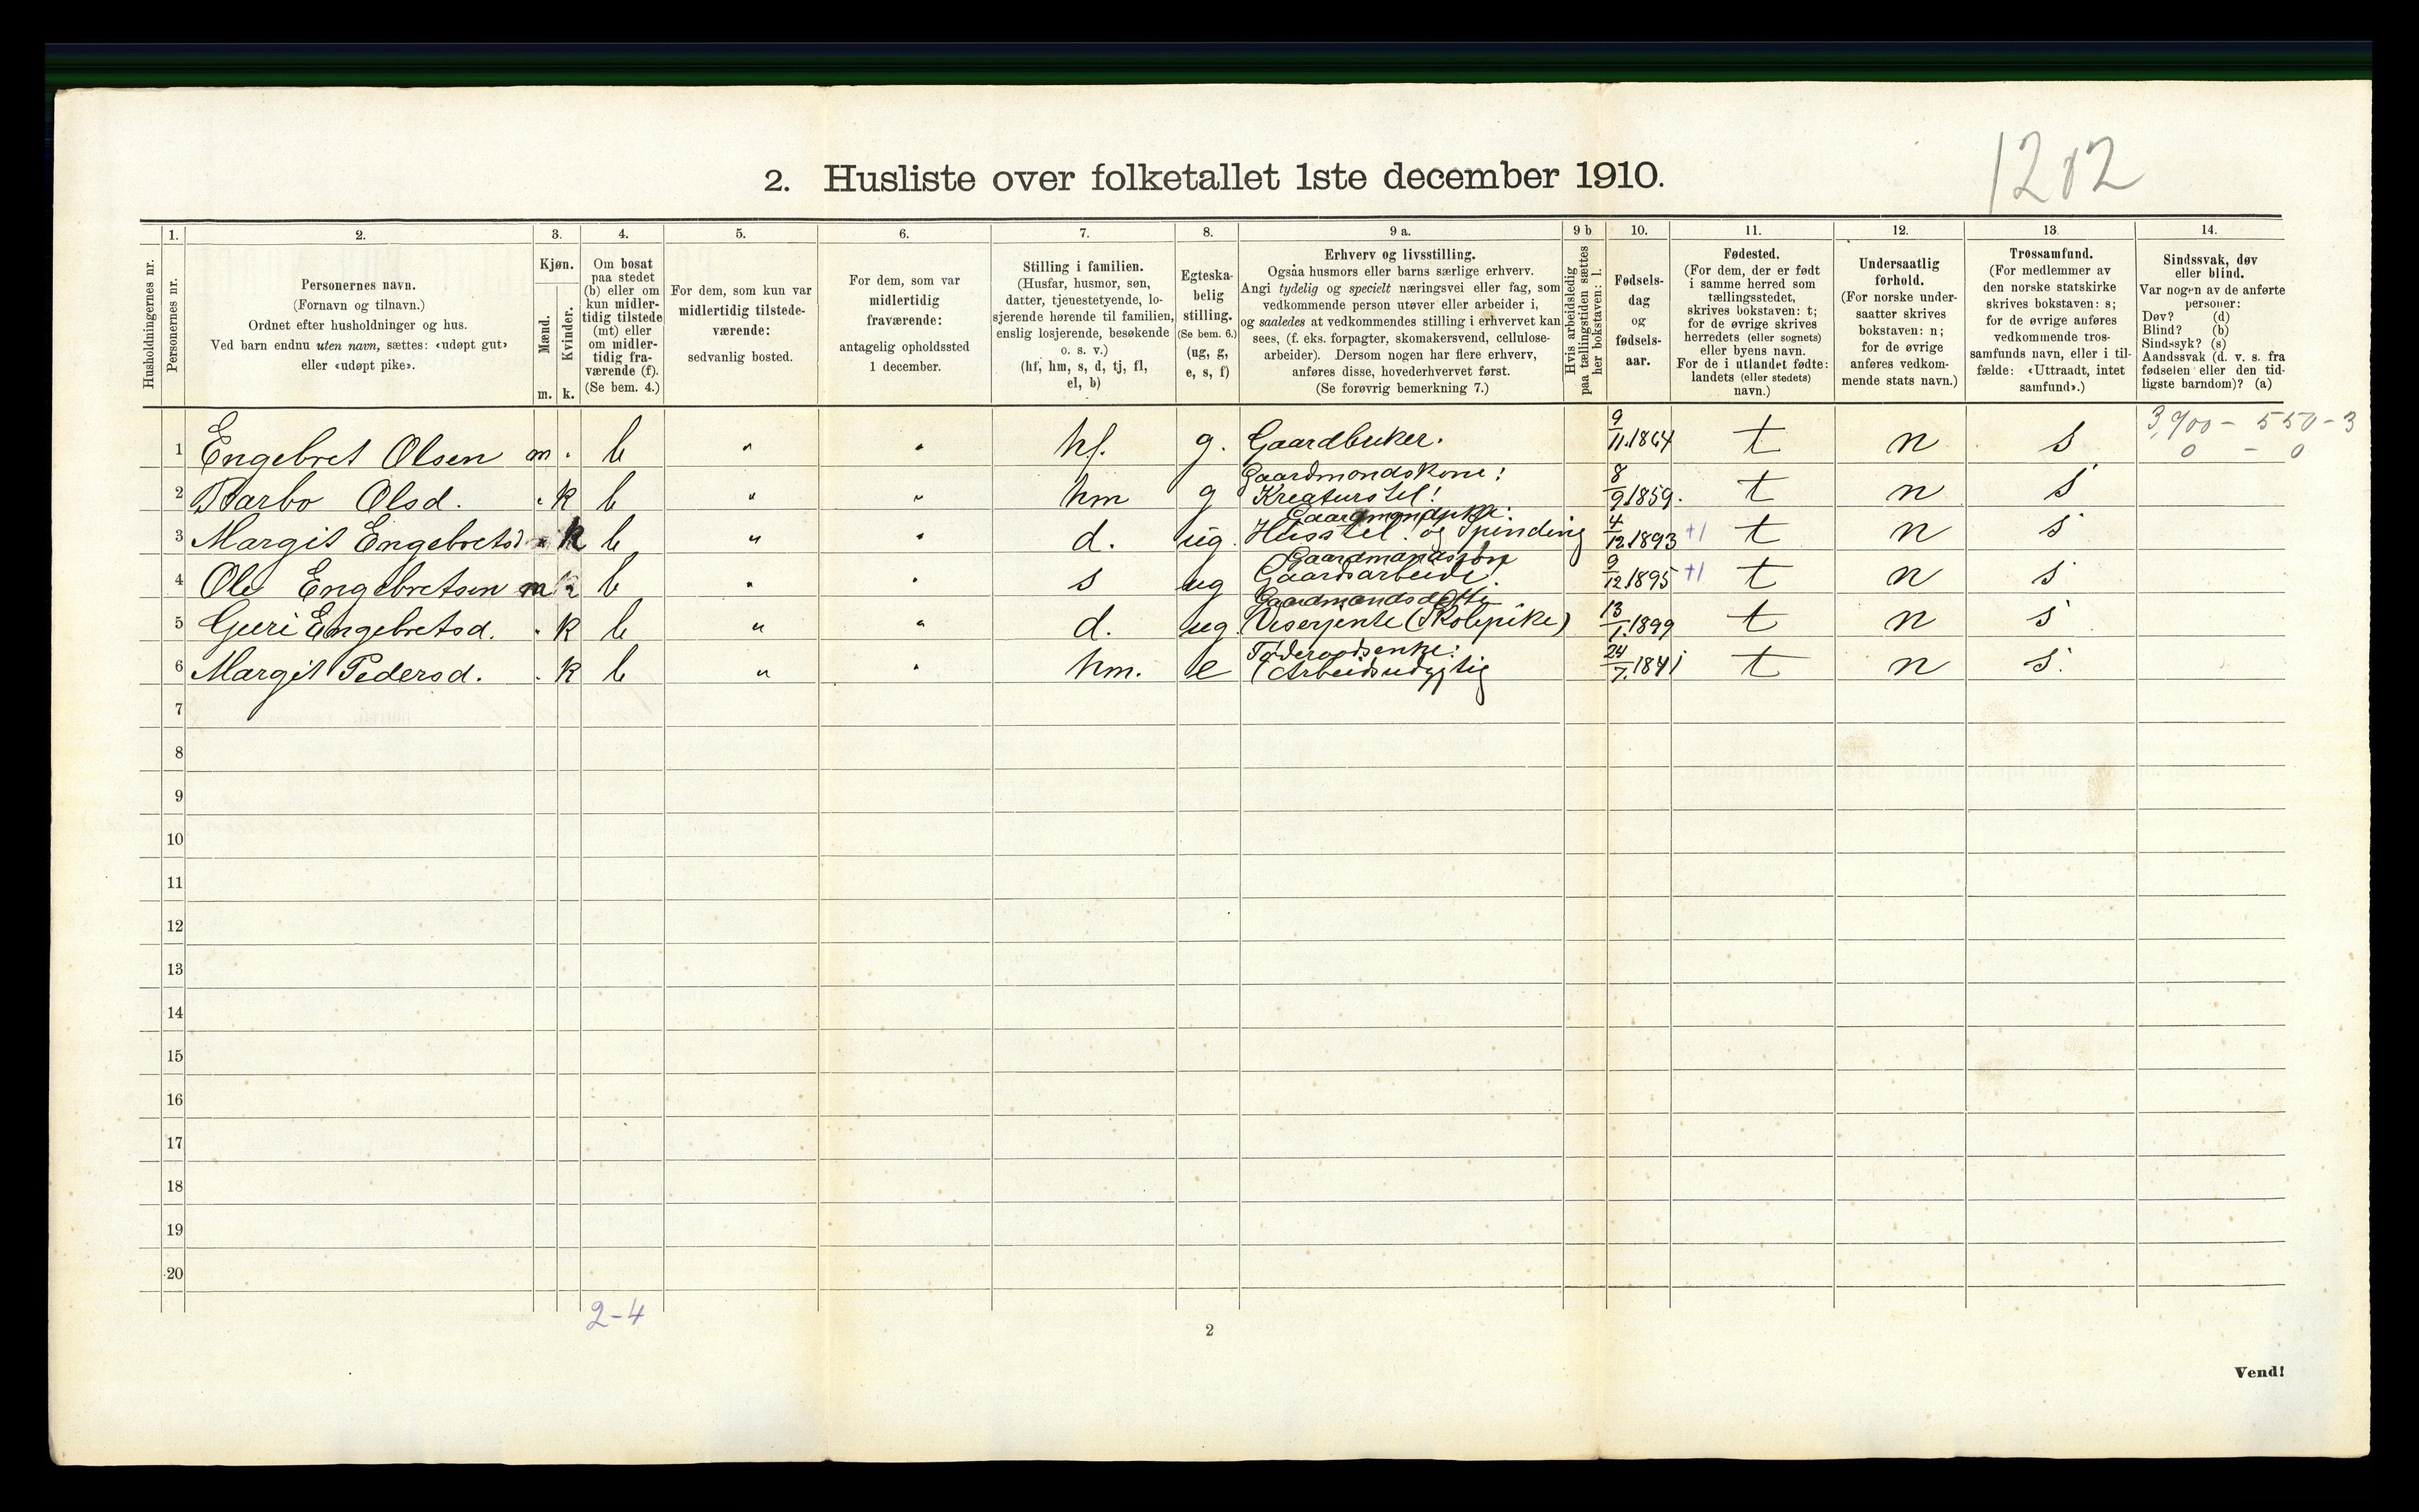 1282
2. Husliste over folketallet 1ste december 1910.
Husholdningernes nr.
1.
Personernes nr.
2.
Personernes navn.
(Fornavn og tilnavn.)
Ordnet efter husholdninger og hus.
Ved barn endnu uten navn, sættes: «udøpt gut»
eller «udøpt pike».
3.
Kjøn.
Mænd.
Kvinder.
m. k.
4.
Om bosat
paa stedet
(b) eller om
kun midler-
tidig tilstede
(mt) eller
om midler-
tidig fra-
værende (f).
(Se bem. 4.)
5.
For dem, som kun var
midlertidig tilstede-
værende:
sedvanlig bosted.
6.
For dem, som var
midlertidig
fraværende:
antagelig opholdssted
1 december.
7.
Stilling i familien.
(Husfar, husmor, søn,
datter, tjenestetyende, lo-
sjerende hørende til familien,
enslig losjerende, besøkende
o. s. v.)
(hf, hm, s, d, tj, fl,
el, b)
8.
Egteska-
belig
stilling.
(Se bem. 6.)
(ug, g,
e, s, f)
9 a.
Erhverv og livsstilling.
Ogsaa husmors eller barns særlige erhverv.
Angi tydelig og specielt næringsvei eller fag, som
vedkommende person utøver eller arbeider i,
og saaledes at vedkommendes stilling i erhvervet kan
sees, (f. eks. forpagter, skomakersvend, cellulose-
arbeider). Dersom nogen har flere erhverv,
anføres disse, hovederhvervet først.
(Se forøvrig bemerkning 7.)
9 b
Hvis arbeidsledig
paa tællingstiden sættes
her bokstaven: l.
10.
Fødsels-
dag
og
fødsels-
aar.
11.
Fødested.
(For dem, der er født
i samme herred som
tællingsstedet,
skrives bokstaven: t;
for de øvrige skrives
herredets (eller sognets)
eller byens navn.
For de i utlandet fødte:
landets (eller stedets)
navn.)
12.
Undersaatlig
forhold.
(For norske under-
saatter skrives
bokstaven: n;
for de øvrige
anføres vedkom-
mende stats navn.)
13.
Trossamfund.
(For medlemmer av
den norske statskirke
skrives bokstaven: s;
for de øvrige anføres
vedkommende tros-
samfunds navn, eller i til-
fælde: «Uttraadt, intet
samfund».)
14.
Sindssvak, døv
eller blind.
Var nogen av de anførte
personer:
Døv? (d)
Blind? (b)
Sindssyk? (s)
Aandssvak (d. v. s. fra
fødselen eller den tid-
ligste barndom)? (a)
3,900 - 550 - 3
0 - 0
1 Engebret Olsen m . b " " hf. g. Gaardbruker. 9/11.1864 t n s
Gaardmondskone:
2 Barbo Olsd. . k b " " hm g Kreaturstel! 8/9 1859. t n s
3 Margit Engebretsd . k b " " d. ug. Husstel. og Spinding 4/12 1893 +1 t n s
Gaardmandssøn
4 Ole Engebretsen m b " " s ug Gaardsarbeide! 9/12 1895 +1 t n s
Gaardmandsdatter
5 Guri Engebretsd. . k b " " d. ug. (Skolepike) 13/1.1899 t n s
Føderaadsenke:
6 Margit Pedersd. . k b " " hm. e (Arbeidsudygtig 24/7.1841 t n s.
7
8
9
10
11
12
13
14
15
16
17
18
19
20
2-4
2
Vend!